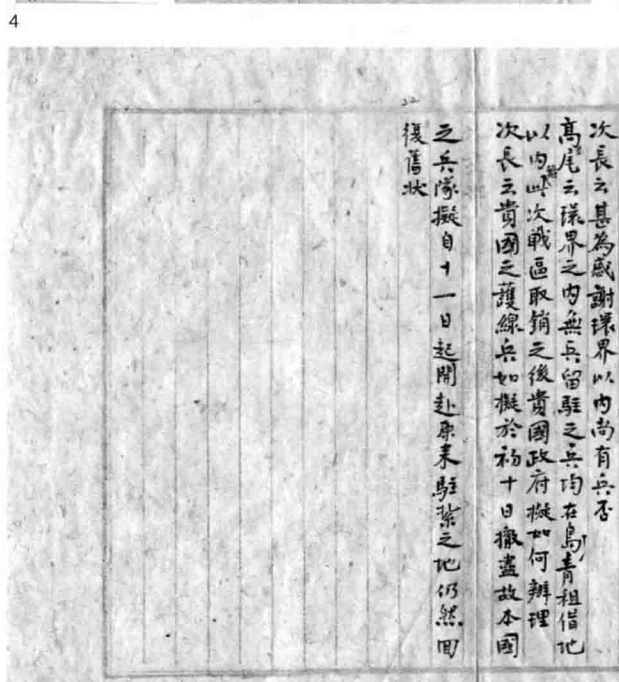 4
次長云甚為感謝環界以内尚有兵否
高尾云環界之内無兵留駐之兵均在島青租借地
以内此次戰區取銷之後貴國政府擬如何辦理
次長云貴國之護線兵如擬於初十日撤盡故本國
之兵隊擬自十一日起開赴原來駐紮之地仍然回
復舊狀